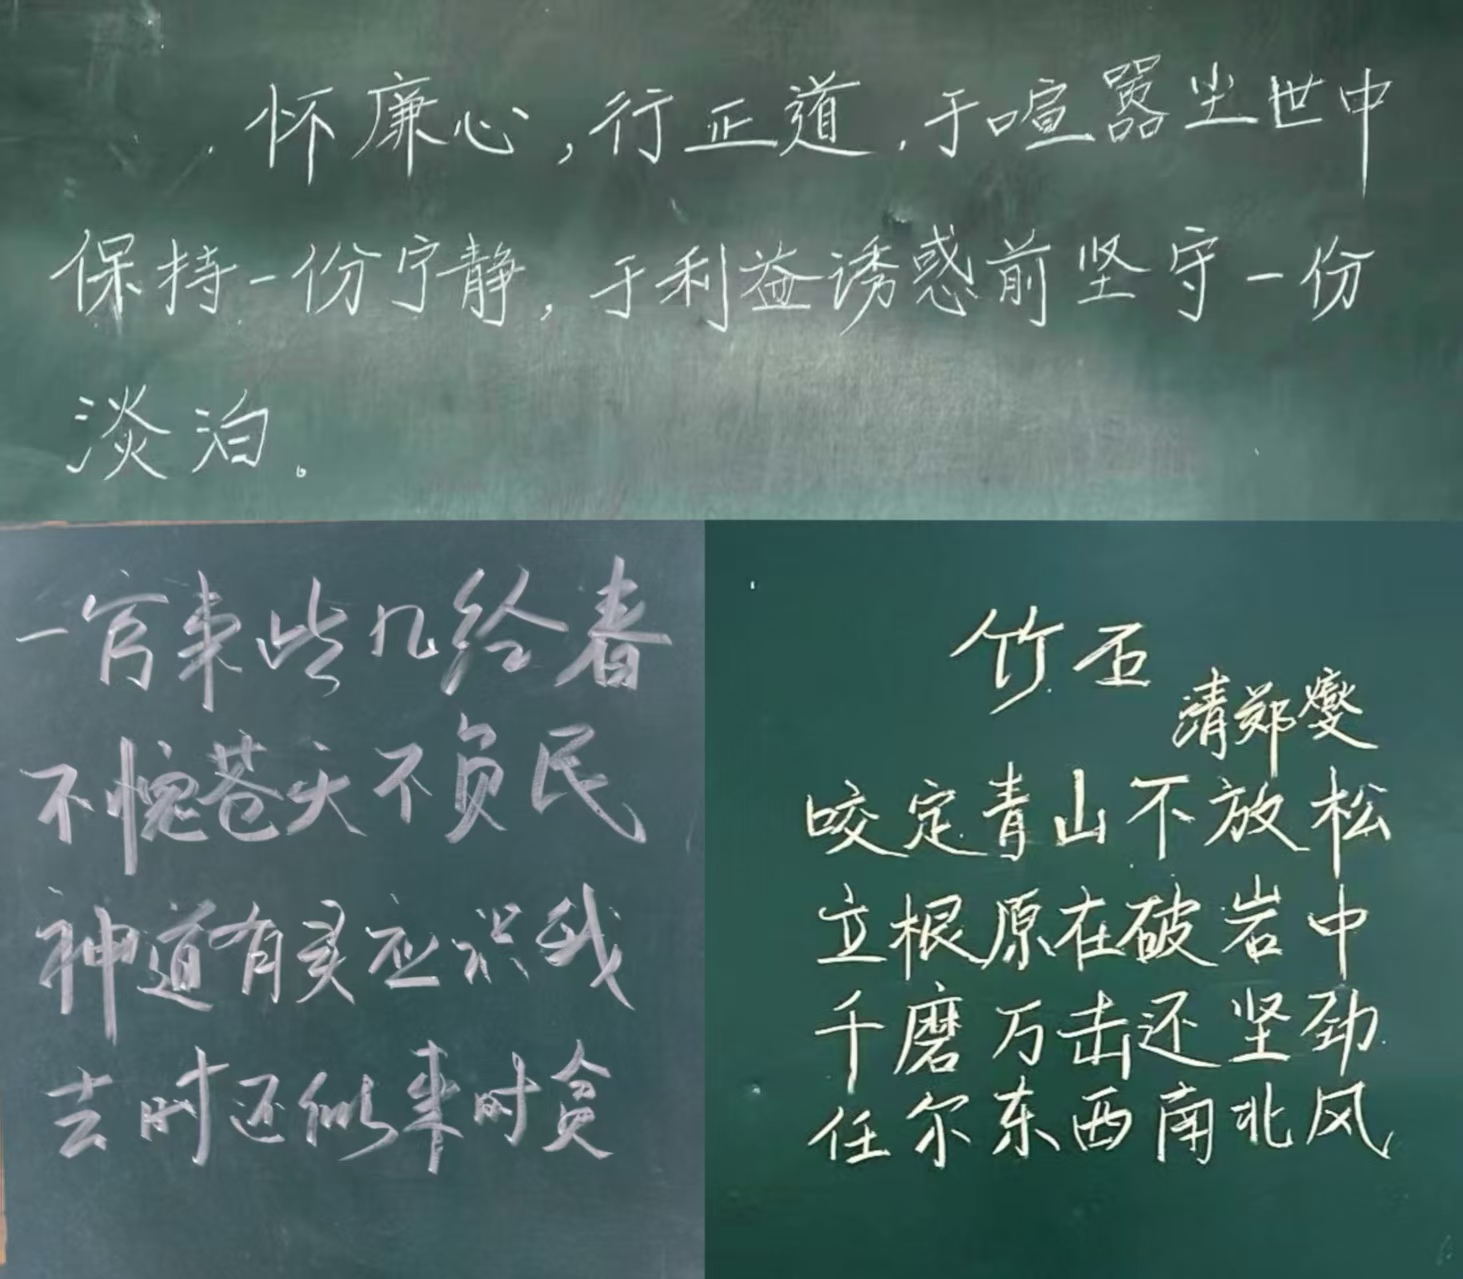 怀廉心,行正道,于喧嚣尘世中
保持一份宁静,于利益诱惑前坚守一份
淡泊。
一官来此几经春
不愧苍天不负民
神道有灵应识我
去时还似来时贫
竹石
清郑燮
咬定青山不放松
立根原在破岩中
千磨万击还坚劲
任尔东西南北风